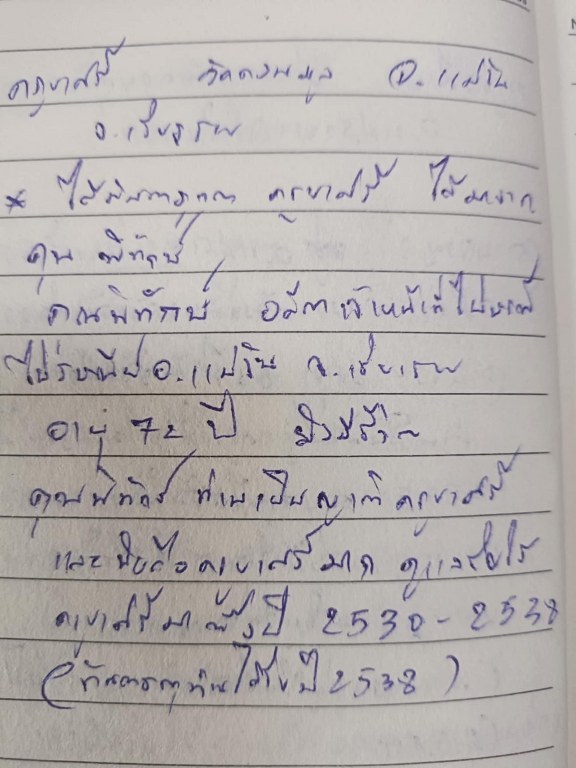 ครูบาศรี วัดดงมะมูล อ.แม่วิน
จ.เชียงราย
* ได้ ครูบาศรี ได้มาจาก
คุณ พิทักษ์
คุณพิทักษ์ อดีตเจ้าหน้าที่ไปรษณีย์
ไปรษณีย์ อ.แม่วิน จ.เชียงราย
อายุ 72 ปี ยังมีชีวิต
คุณพิทักษ์ ท่านเป็นญาติ ครูบาศรี
และนับถือครูบาศรีมาก ดูแลรับใช้
ครูบาศรีมาตั้งปี 2530 - 2538
(ท่าน ปี 2538)